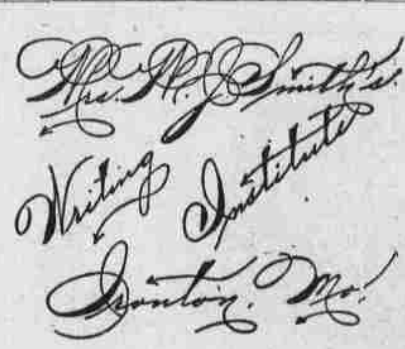 Mrs. M. J. Smith's
Writing Institute
Ironton, Mo.